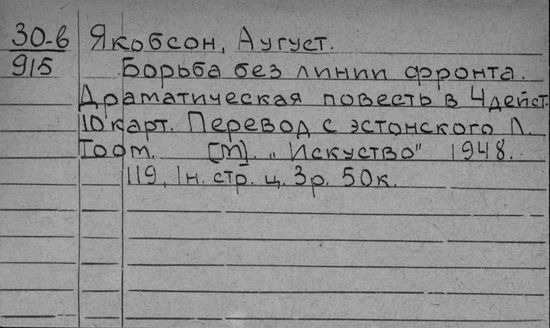 30-6 Якобсон, Аугуст.
915 Борьба без линии фронта.
Драматическая повесть в 4 дейст.
10 карт. Перевод с эстонского Л.
Тоом. [М]. „Искуство" 1948.
119, 1н. стр. ц. 3р. 50к.